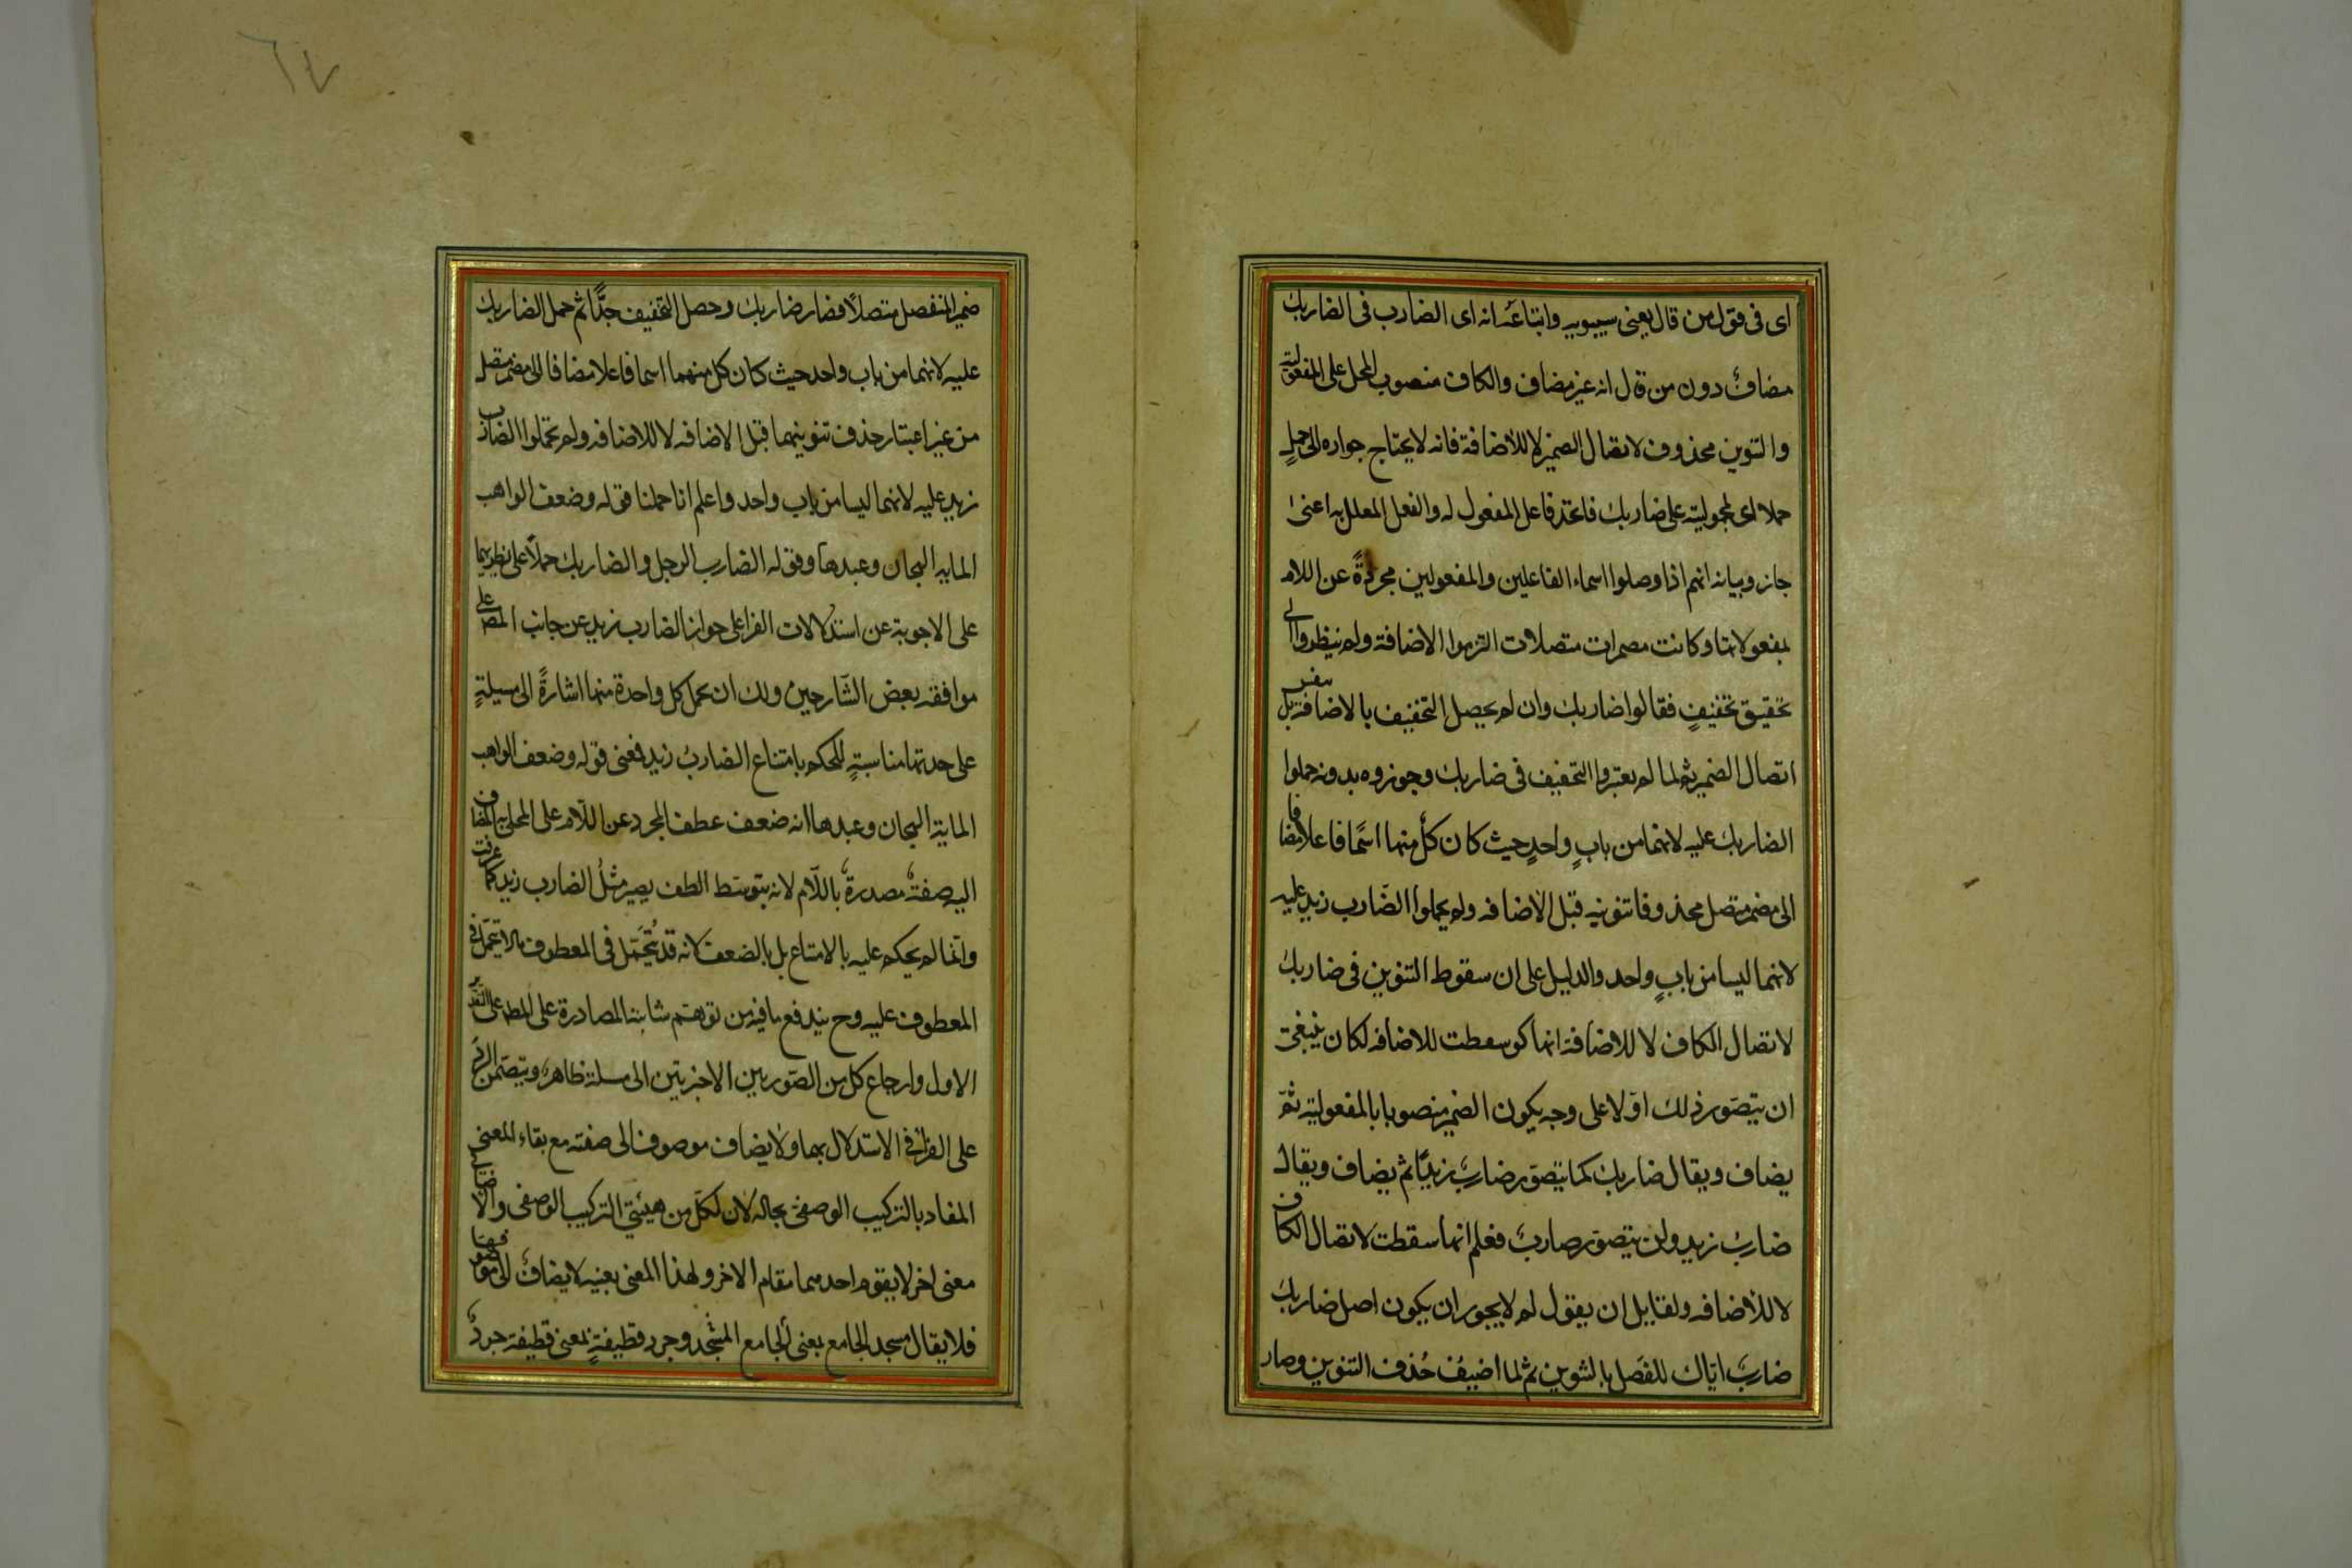 اى فى قول من قال يعنى سيبويه واتباعه انه اى الضارب فى الضاربك
مضاف دون من قال انه غير مضاف والكاف منصوب المحل على المفعولية
والتنوين محذوف لاتصال الضمير لا للاضافة فانه لا يحتاج جوازه الى حمل
حملا اى لمحموليته على ضاربك فاتحد فاعل المفعول له والفعل المعلل به اعنى
جاز وبيانه انهم اذا وصلوا اسماء الفاعلين والمفعولين مجردة عن اللام
بمفعولاتها وكانت مضمرات متصلات التزموا الاضافة ولم ينظروا الى
تحقيق تخفيف فقالوا ضاربك وان لم يحصل التخفيف بالاضافة بل بنفس
اتصال الضمير ثم لما لم يعتبروا التخفيف فى ضاربك وجوزوه بدونه حملوا
الضاربك عليه لانهما من باب واحد حيث كان كل منهما اسما فاعلا مضافا
الى مضمر متصل محذوفا تنوينه قبل الاضافه ولم يحملوا الضارب زيد عليه
لانهما ليسا من باب واحد والدليل على ان سقوط التنوين فى ضاربك
لاتصال الكاف لا للاضافة انها لو سقطت للاضافه لكان ينبغى
ان يتصور ذلك اولا على وجه يكون الضمير منصوبا بالمفعولية ثم
يضاف ويقال ضاربك كما يتصور ضارب زيدا ثم يضاف ويقال
ضارب زيد ولن يتصور ضاربك فعلم انها سقطت لاتصال الكاف
لا للاضافه ولقايل ان يقول لم لا يجوز ان يكون اصل ضاربك
ضارب اياك للفصل بالتنوين ثم لما اضيف حذف التنوين وصار
٦٧
ضمير المنفصل متصلا فصار ضاربك وحصل التخفيف جدا ثم حمل الضاربك
عليه لانهما من باب واحد حيث كان كل منهما اسما فاعلا مضافا الى مضمر متصل
من غير اعتبار حذف تنوينهما قبل الاضافه لا للاضافه ولم يحملوا الضارب
زيد عليه لانهما ليسا من باب واحد واعلم انا حملنا قوله وضعف الواهب
المايه الهجان وعبدها وقوله الضارب الرجل والضاربك حملا على نظيريهما
على الاجوبة عن استدلالات الفرا على جواز الضارب زيد عن جانب المص على
موافقة بعض الشارحين ولك ان تحمل كل واحدة منها اشارة الى مسيلة
على حدتها مناسبة للحكم بامتناع الضارب زيد فمعنى قوله وضعف الواهب
الماية الهجان وعبدها انه ضعف عطف المجرد عن اللام على المحلى به المضاف
اليه صفة مصدرة باللام لانه بتوسط العطف يصير مثل الضارب زيد كما عرفت
وانما لم يحكم عليه بالامتناع بل بالضعف لانه قد يتحمل فى المعطوف ما لا يتحمل فى
المعطوف عليه وح يندفع ما فيه من توهم شايبة المصادرة على المط على التقدير
الاول وارجاع كل من الصورتين الاخيرتين الى مسلة ظاهر، ويتضمن الرد
على الفرا فى الاستدلال بهما ولا يضاف موصوف الى صفته مع بقاء المعنى
المفاد بالتركيب الوصفى بحاله لان لكل من هيئتى التركيب الوصفى والاضافى
معنى اخر لا يقوم احدهما مقام الاخر ولهذا المعنى بعينه لا يضاف صفة الى موصوفها
فلا يقال مسجد الجامع بمعنى الجامع المسجد وجرد قطيفة بمعنى قطيفة جرد